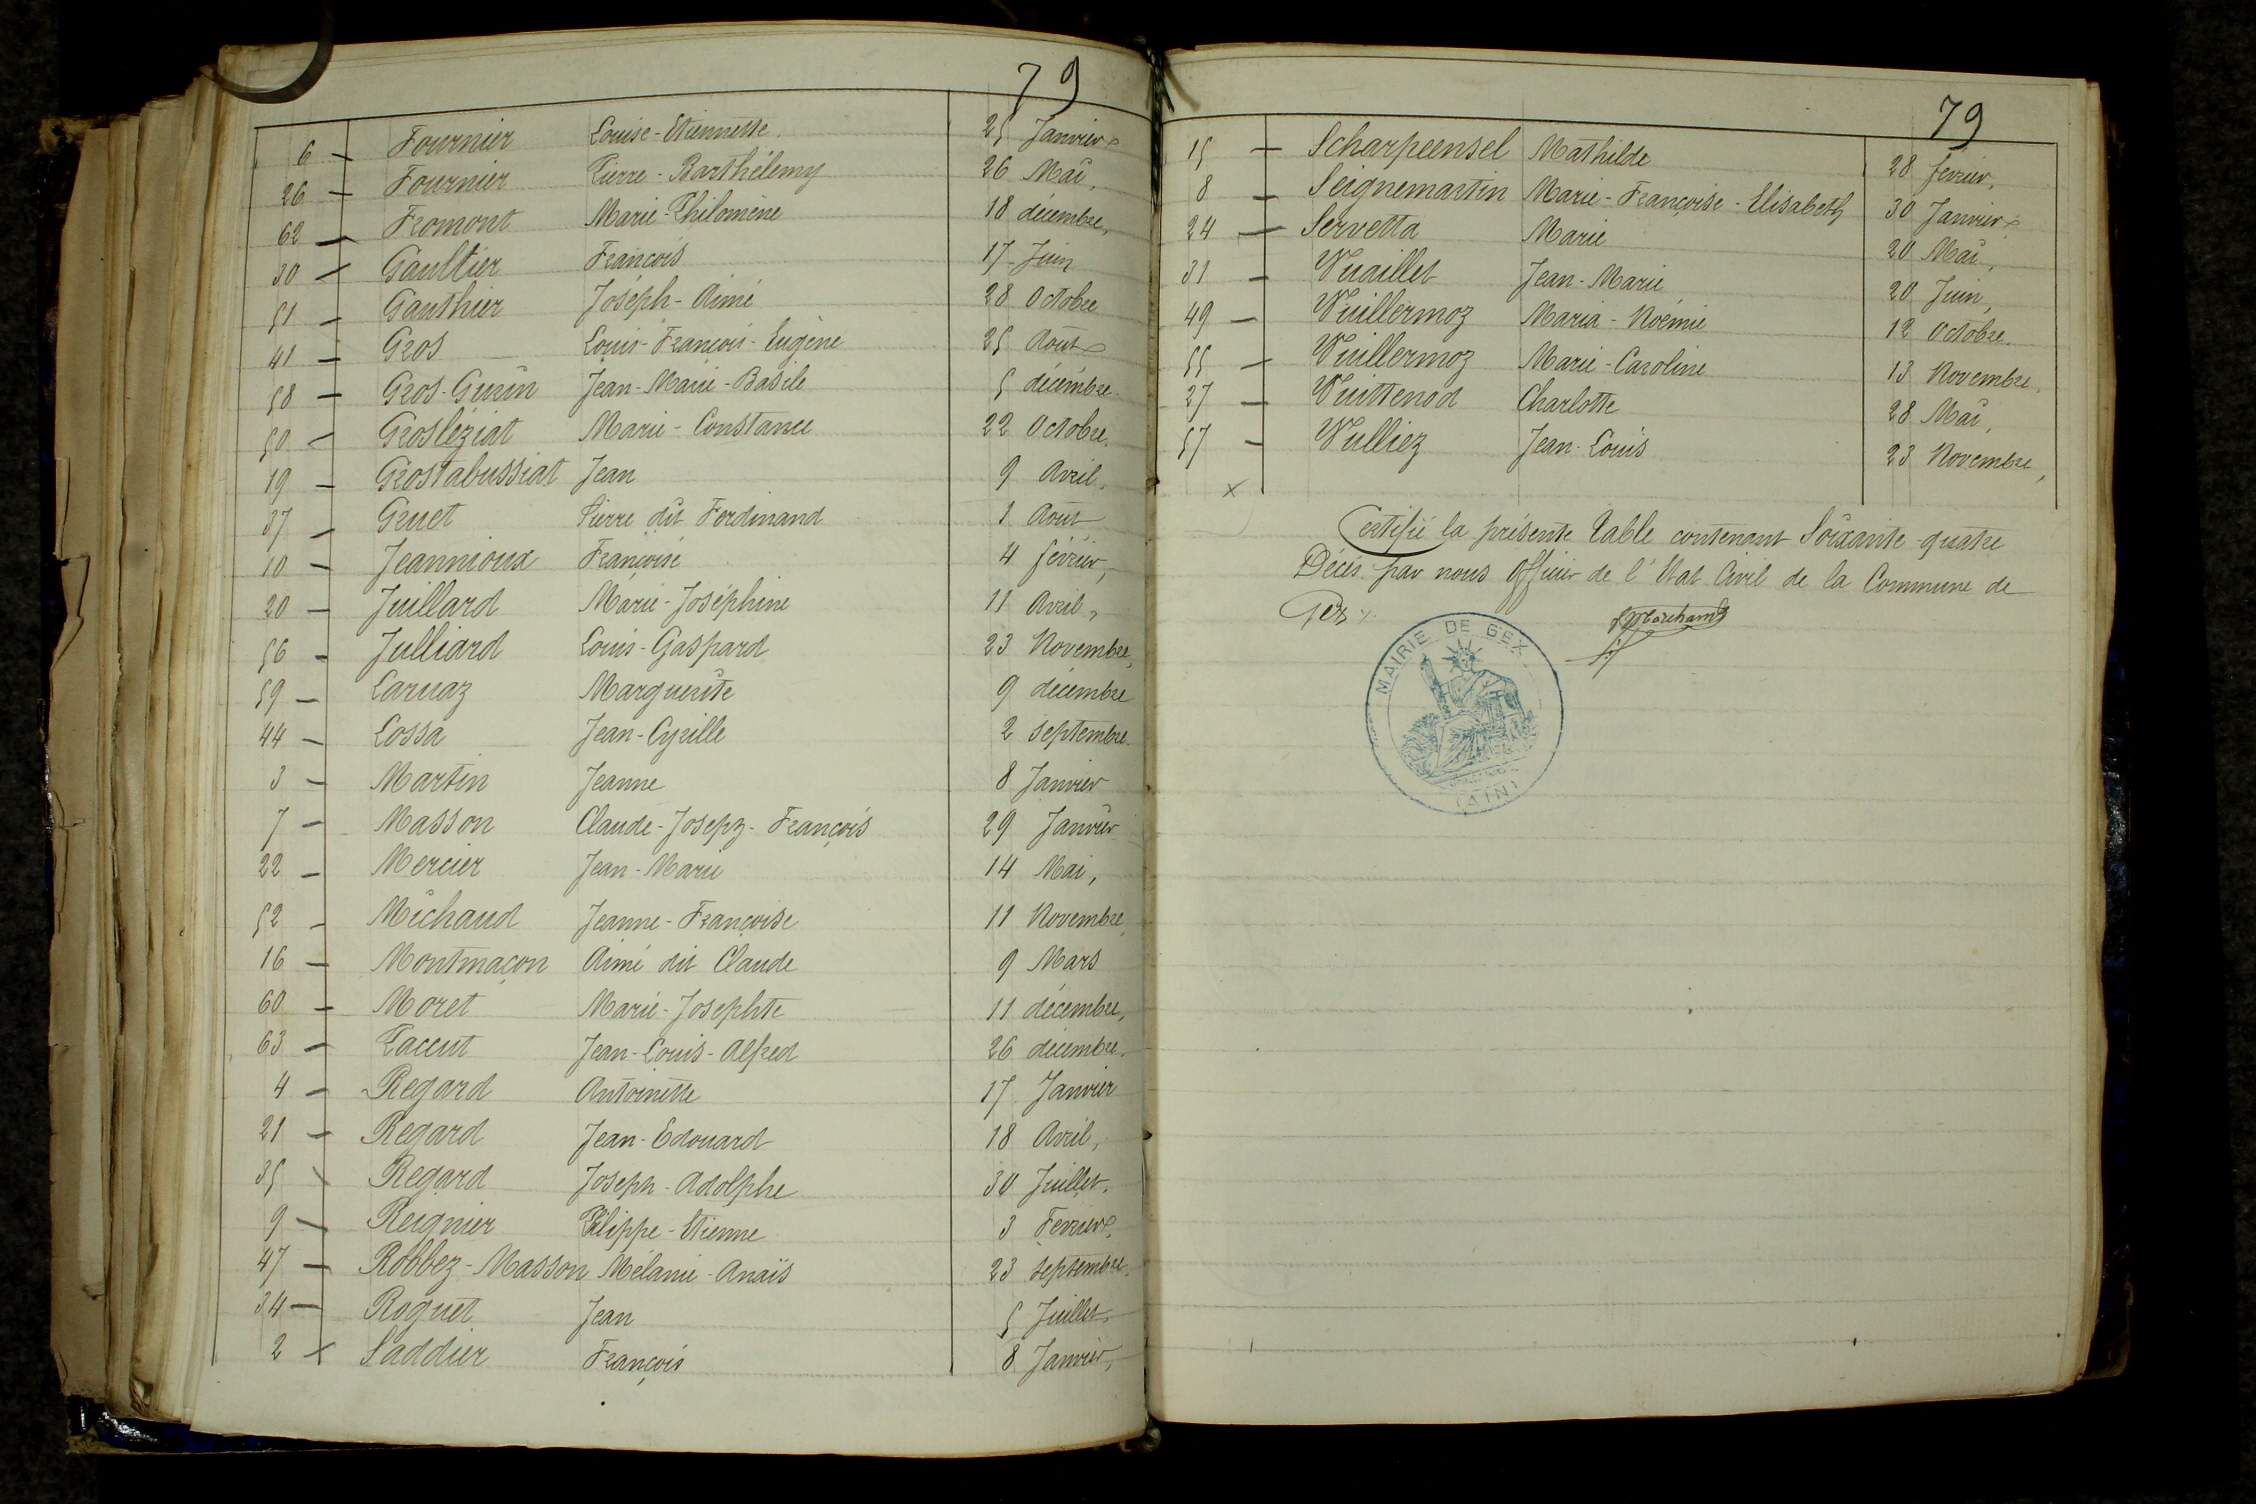 79
6 — Fournier Louise-Etiennette. 25 Janvier
26 — Fournier Pierre-Barthélemy 26 Mai,
62 — Fromont Marie-Philomène 18 décembre,
30 — Gaultier François 17 Juin
51 — Gauthier Joseph-Aimé 28 Octobre
41 — Gros Louis-François-Eugène 25 Août
58 — Gros-Gurin Jean-Marie-Basile 5 décembre
50 — Grosléziat Marie-Constance 22 Octobre,
19 — Grostabussiat Jean 9 Avril,
37 — Gruet Pierre dit Ferdinand 1 Août
10 — Jeannioux Françoise 4 février,
20 — Juillard Marie-Joséphine 11 Avril,
56 — Julliard Louis-Gaspard 23 Novembre,
59 — Laruaz Marguerite 9 décembre
44 — Lossa Jean-Cyrille 2 septembre
3 — Martin Jeanne 8 Janvier
7 — Masson Claude-Joseph-François 29 Janvier
22 — Mercier Jean-Marie 14 Mai,
52 — Michaud Jeanne-Françoise 11 Novembre,
16 — Montmaçon Aimé dit Claude 9 Mars
60 — Moret Marie-Josephte 11 décembre,
63 — Pacent Jean-Louis-Alfred 26 décembre.
4 — Regard Antoinette 17 Janvier
21 — Regard Jean-Edouard 18 Avril,
35 — Regard Joseph-Adolphe 30 Juillet.
9 — Reignier Philippe-Etienne 3 Fevrier
47 — Robbez-Masson Mélanie-Anaïs 23 septembre.
34 — Roguet Jean 5 Juillet.
2 — Saddier François 8 Janvier,
79
15 — Scharpeensel Mathilde 28 février,
8 — Seignemartin Marie-Françoise-Elisabeth 30 Janvier
24 — Servetta Marie 20 Mai,
31 — Vuaillet Jean-Marie 20 Juin,
49 — Vuillermoz Maria-Noémie 12 Octobre.
55 — Vuillermoz Marie-Caroline 13 Novembre.
27 — Vuittenod Charlotte 28 Mai,
57 — Vulliez Jean-Louis 23 Novembre,
x
Certifié la présente Table contenant Soixante-quatre
Décès par nous Officier de l'Etat Civil de la Commune de
Gex
MAIRIE DE GEX
(AIN)